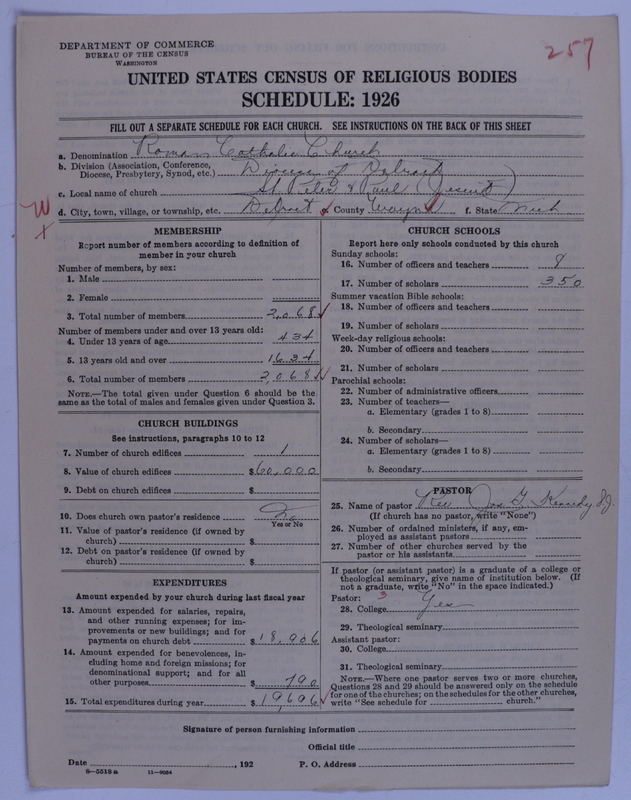 DEPARTMENT OF COMMERCE
BUREAU OF THE CENSUS
WASHINGTON
257
UNITED STATES CENSUS OF RELIGIOUS BODIES
SCHEDULE: 1926
FILL OUT A SEPARATE SCHEDULE FOR EACH CHURCH. SEE INSTRUCTIONS ON THE BACK OF THIS SHEET
a. Denomination Roman Catholic Church
b. Division (Association, Conference, Diocese, Presbytery, Synod, etc.) Diocese of Detroit
c. Local name of church St Peter & Paul (Jesuit)
d. City, town, village, or township, etc. Detroit e. County Wayne f. State Mich
MEMBERSHIP
Report number of members according to definition of
member in your church
Number of members, by sex:
1. Male
2. Female
3. Total number of members 2,068
Number of members under and over 13 years old:
4. Under 13 years of age 434
5. 13 years old and over 1634
6. Total number of members 2,068
NOTE.—The total given under Question 6 should be
same as the total of males and females given under Question 3.
CHURCH BUILDINGS
See instructions, paragraphs 10 to 12
7. Number of church edifices 1
8. Value of church edifices $ 60,000
9. Debt on church edifices $
10. Does church own pastor's residence No
Yes or No
11. Value of pastor's residence (if owned by
church) $
12. Debt on pastor's residence (if owned by
church) $
EXPENDITURES
Amount expended by your church during last fiscal year
13. Amount expended for salaries, repairs,
and other running expenses; for im-
provements or new buildings; and for
payments on church debt $ 18,906
14. Amount expended for benevolences, in-
cluding home and foreign missions; for
denominational support; and for all
other purposes $ 790
15. Total expenditures during year $ 19,696
CHURCH SCHOOLS
Report here only schools conducted by this church
Sunday schools:
16. Number of officers and teachers 8
17. Number of scholars 350
Summer vacation Bible schools:
18. Number of officers and teachers
19. Number of scholars
Week-day religious schools:
20. Number of officers and teachers
21. Number of scholars
Parochial schools:
22. Number of administrative officers
23. Number of teachers—
a. Elementary (grades 1 to 8)
b. Secondary
24. Number of scholars—
a. Elementary (grades 1 to 8)
b. Secondary
PASTOR
25. Name of pastor Rev Jos G. Kennedy SJ.
(If church has no pastor, write "None")
26. Number of ordained ministers, if any, em-
ployed as assistant pastors
27. Number of other churches served by the
pastor or his assistants
If pastor (or assistant pastor) is a graduate of a college or
theological seminary, give name of institution below. (If
not a graduate, write "No" in the space indicated.)
Pastor: 3
28. College Yes
29. Theological seminary
Assistant pastor:
30. College
31. Theological seminary
NOTE.—Where one pastor serves two or more churches,
Questions 28 and 29 should be answered only on the schedule
for one of the churches; on the schedules for the other churches,
write "See schedule for church."
Signature of person furnishing information
Official title
Date , 192 P. O. Address
8—5518a 11—9034